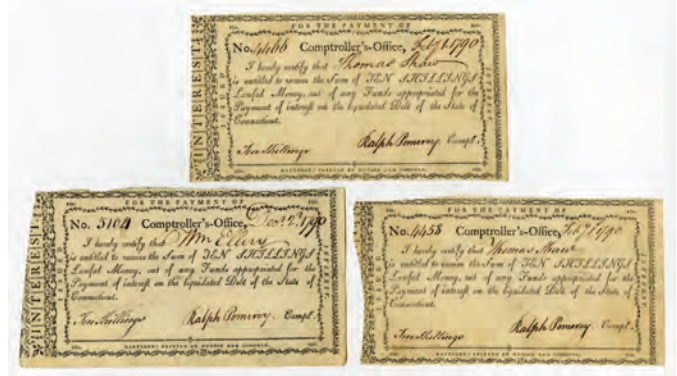 FOR THE PAYMENT OF
INTEREST
No. 4466 Comptroller's-Office, Feby 1 1790
I hereby certify that Thomas Shaw
is entitled to receive the Sum of TEN SHILLINGS
Lawful Money, out of any Funds appropriated for the
Payment of interest on the liquidated Debt of the State of
Connecticut.
Ten Shillings Ralph Pomeroy Compt.
HARTFORD: PRINTED BY HUDSON AND GOODWIN.
FOR THE PAYMENT OF
INTEREST
No. 5104 Comptroller's-Office, Decr 2d 1790
I hereby certify that Wm Ellery
is entitled to receive the Sum of TEN SHILLINGS
Lawful Money, out of any Funds appropriated for the
Payment of interest on the liquidated Debt of the State of
Connecticut.
Ten Shillings Ralph Pomeroy Compt.
HARTFORD: PRINTED BY HUDSON AND GOODWIN.
FOR THE PAYMENT OF
INTEREST
No. 4458 Comptroller's-Office, Feby 1 1790
I hereby certify that Thomas Shaw
is entitled to receive the Sum of TEN SHILLINGS
Lawful Money, out of any Funds appropriated for the
Payment of interest on the liquidated Debt of the State of
Connecticut.
Ten Shillings Ralph Pomeroy Compt.
HARTFORD: PRINTED BY HUDSON AND GOODWIN.